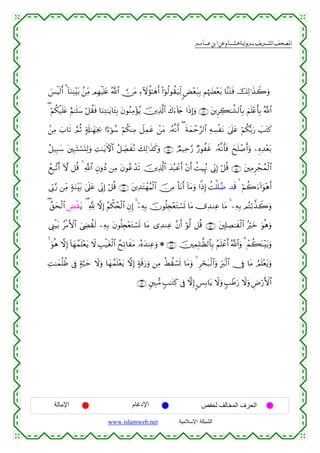 المصحف الشريف برواية هشام عن ابن عامر
وَكَذَٰلِكَ فَتَنَّا بَعْضَهُم بِبَعْضٍ لِّيَقُولُوٓا۟ أَهَٰٓؤُلَآءِ مَنَّ ٱللَّهُ عَلَيْهِم مِّنۢ بَيْنِنَآ ۗ أَلَيْسَ
ٱللَّهُ بِأَعْلَمَ بِٱلشَّٰكِرِينَ ۝ وَإِذَا جَآءَكَ ٱلَّذِينَ يُؤْمِنُونَ بِـَٔايَٰتِنَا فَقُلْ سَلَٰمٌ عَلَيْكُمْ ۖ
كَتَبَ رَبُّكُمْ عَلَىٰ نَفْسِهِ ٱلرَّحْمَةَ ۖ أَنَّهُۥ مَنْ عَمِلَ مِنكُمْ سُوٓءًۢا بِجَهَٰلَةٍ ثُمَّ تَابَ مِنۢ
بَعْدِهِۦ وَأَصْلَحَ فَأَنَّهُۥ غَفُورٌ رَّحِيمٌ ۝ وَكَذَٰلِكَ نُفَصِّلُ ٱلْءَايَٰتِ وَلِتَسْتَبِينَ سَبِيلُ
ٱلْمُجْرِمِينَ ۝ قُلْ إِنِّى نُهِيتُ أَنْ أَعْبُدَ ٱلَّذِينَ تَدْعُونَ مِن دُونِ ٱللَّهِ ۚ قُل لَّآ أَتَّبِعُ
أَهْوَآءَكُمْ ۙ قَد ضَّلَلْتُ إِذًا وَمَآ أَنَا۠ مِنَ ٱلْمُهْتَدِينَ ۝ قُلْ إِنِّى عَلَىٰ بَيِّنَةٍ مِّن رَّبِّى
وَكَذَّبْتُم بِهِۦ ۚ مَا عِندِى مَا تَسْتَعْجِلُونَ بِهِۦٓ ۚ إِنِ ٱلْحُكْمُ إِلَّا لِلَّهِ ۖ يَقْضِ ٱلْحَقَّ ۖ
وَهُوَ خَيْرُ ٱلْفَٰصِلِينَ ۝ قُل لَّوْ أَنَّ عِندِى مَا تَسْتَعْجِلُونَ بِهِۦ لَقُضِىَ ٱلْأَمْرُ بَيْنِى
وَبَيْنَكُمْ ۗ وَٱللَّهُ أَعْلَمُ بِٱلظَّٰلِمِينَ ۝ ۞ وَعِندَهُۥ مَفَاتِحُ ٱلْغَيْبِ لَا يَعْلَمُهَآ إِلَّا هُوَ ۚ
وَيَعْلَمُ مَا فِى ٱلْبَرِّ وَٱلْبَحْرِ ۚ وَمَا تَسْقُطُ مِن وَرَقَةٍ إِلَّا يَعْلَمُهَا وَلَا حَبَّةٍ فِى ظُلُمَٰتِ
ٱلْأَرْضِ وَلَا رَطْبٍ وَلَا يَابِسٍ إِلَّا فِى كِتَٰبٍ مُّبِينٍ ۝
الحرف المخالف لحفص الإدغام الإمالة
الشبكة الإسلامية www.islamweb.net